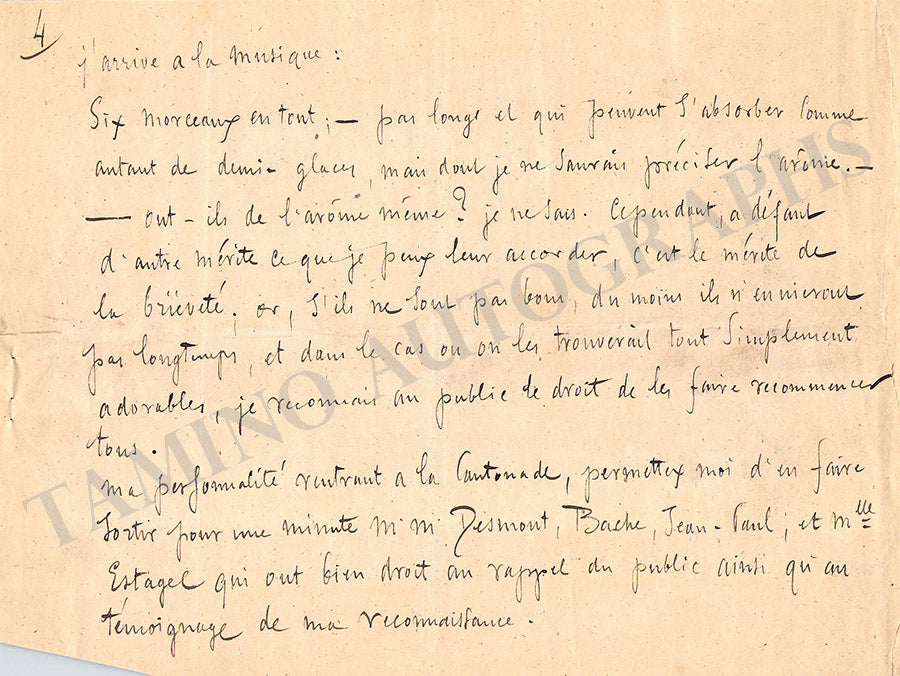 4
j'arrive a la musique :
Six morceaux en tout ; — pas longs et qui peuvent s'absorber comme
autant de demi-glaces, mais dont je ne saurais préciser l'arôme. —
— ont-ils de l'arôme même ? je ne sais. Cependant, a défaut
d'autre mérite ce que je peux leur accorder, c'est le mérite de
la brièveté ; or, s'ils ne sont pas bons, du moins ils n'ennuieront
pas longtemps, et dans le cas ou on les trouverait tout simplement
adorables, je reconnais au public le droit de les faire recommencer
tous.
ma personnalité rentrant a la Cantonade, permettez moi d'en faire
sortir pour une minute M.M. Desmont, Bache, Jean-Paul ; et Mlle
Estagel qui ont bien droit au rappel du public ainsi qu'au
témoignage de ma reconnaissance.
TAMINO AUTOGRAPHS